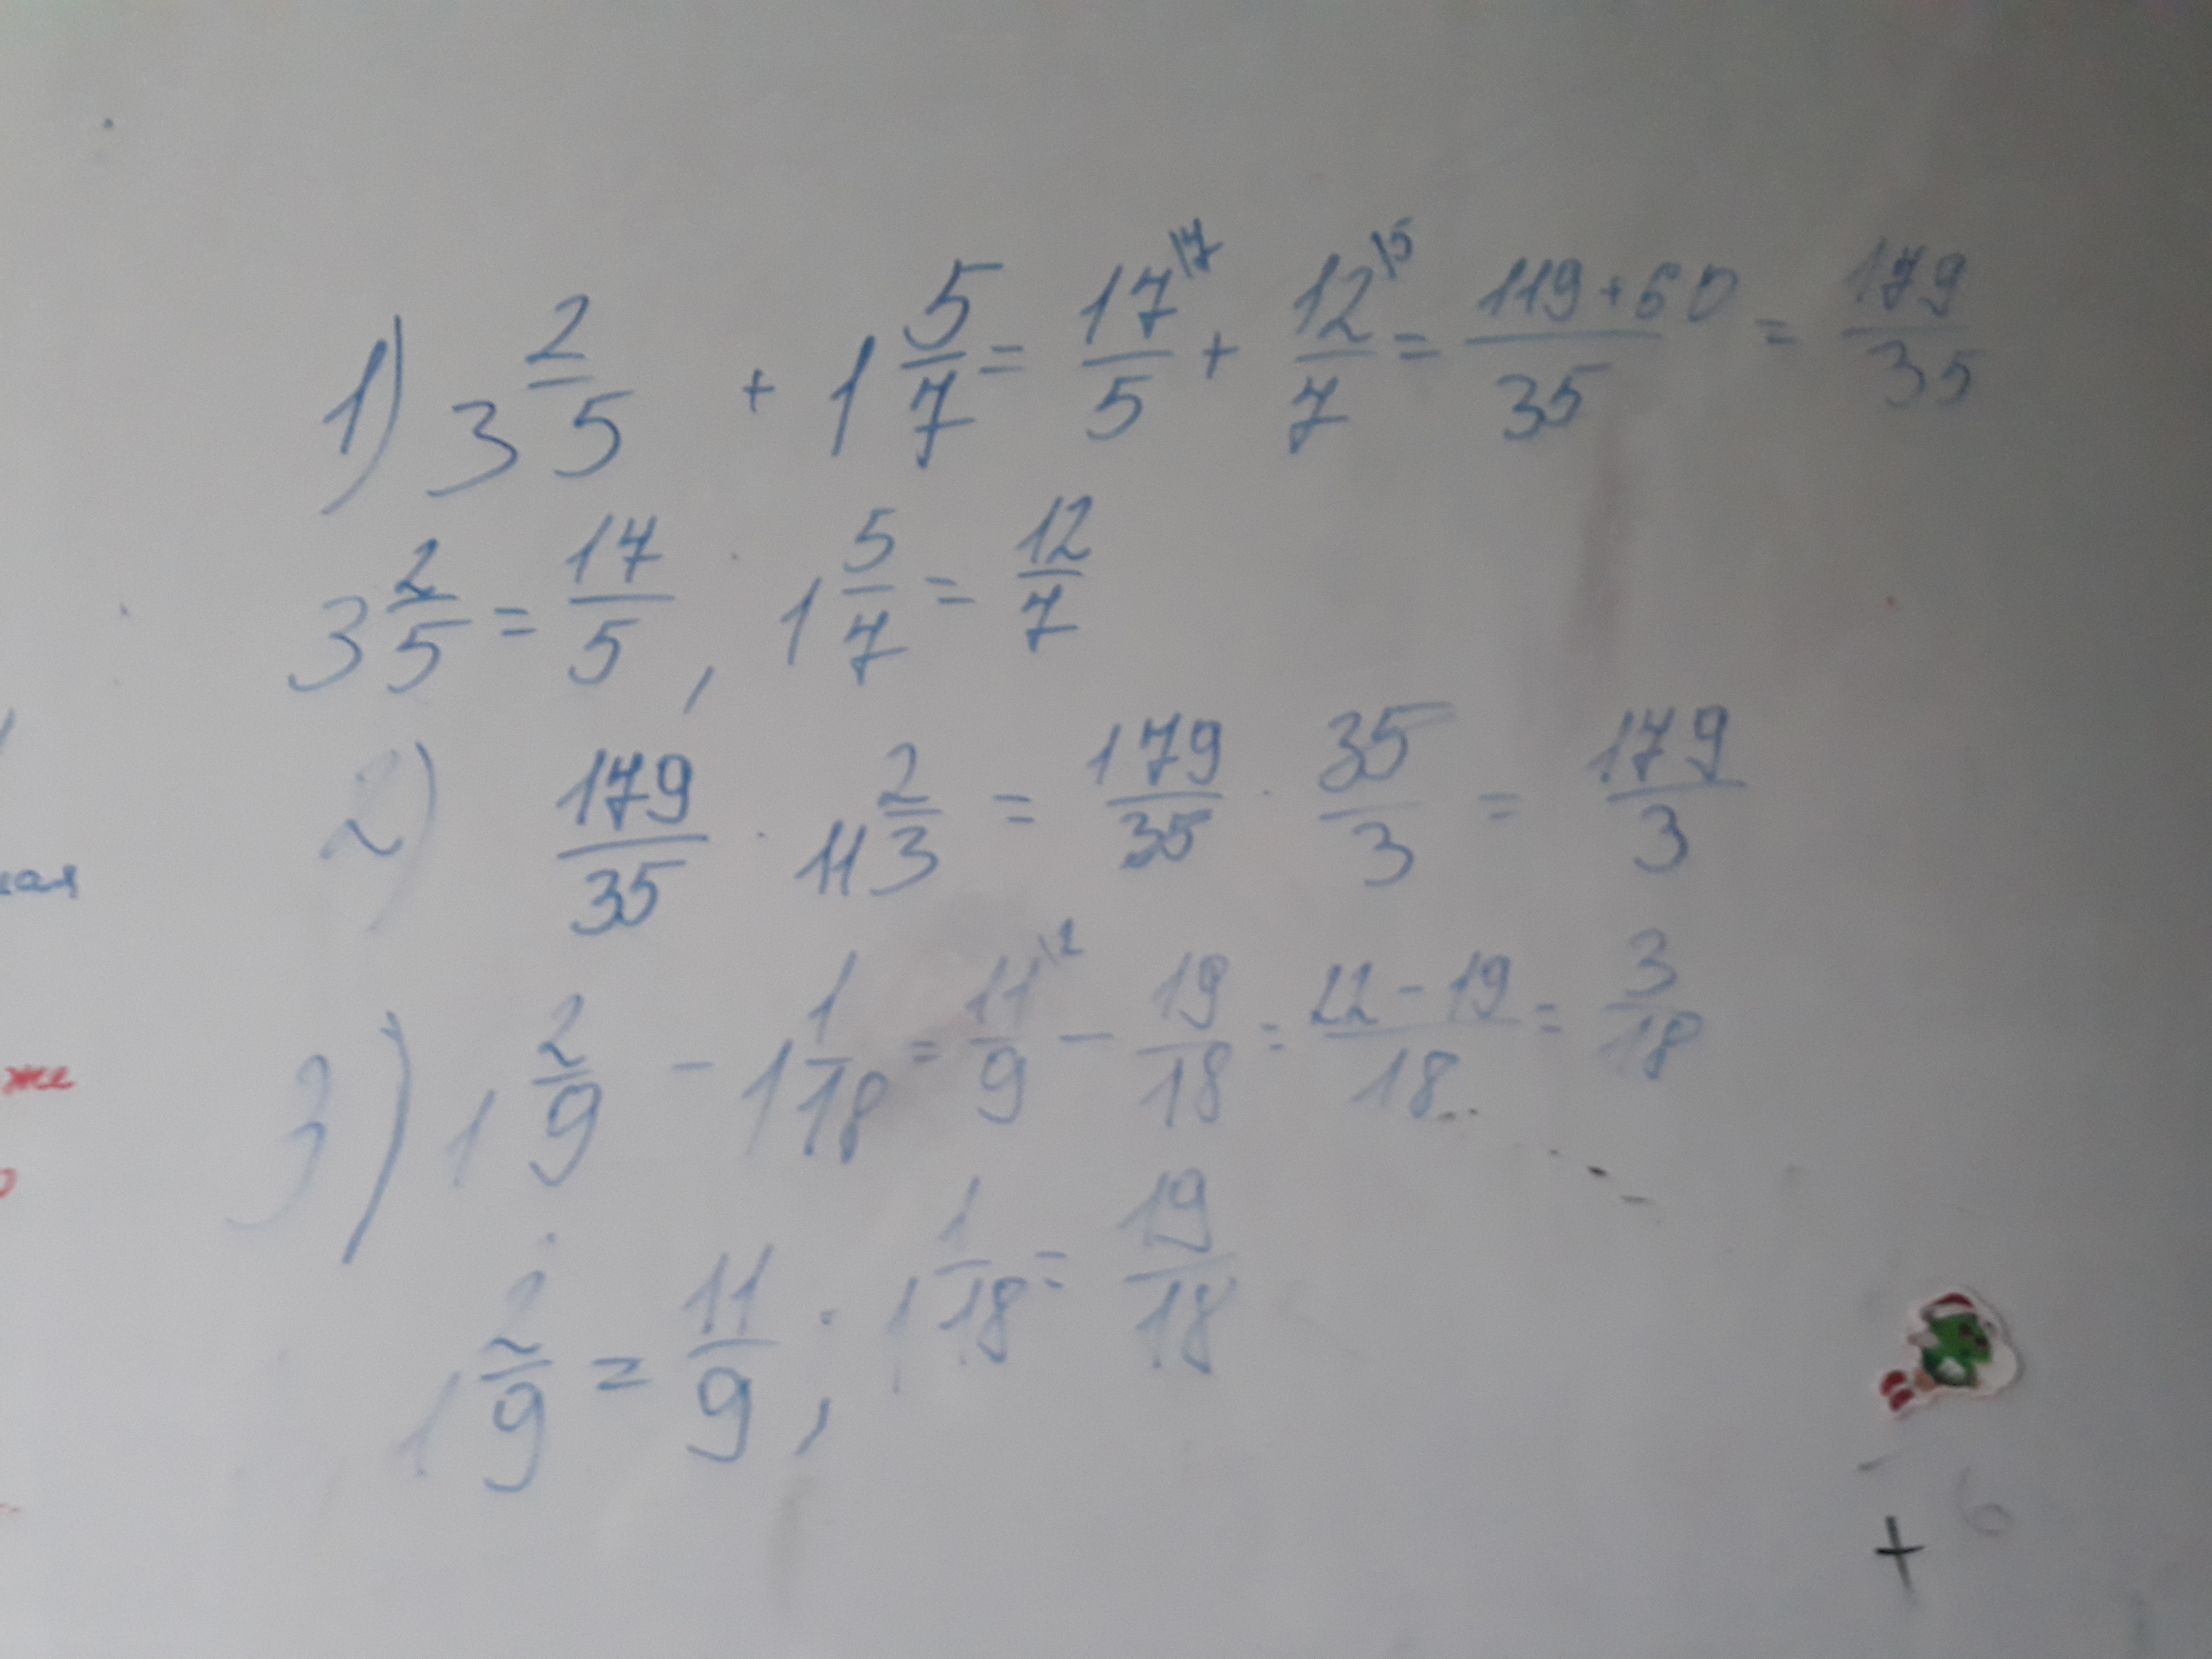 1) 3 2/5 + 1 5/7 = 17/5 \7 + 12/7 \5 = 119+60/35 = 179/35
3 2/5 = 17/5 , 1 5/7 = 12/7
2) 179/35 · 11 2/3 = 179/35 · 35/3 = 179/3
3) 1 2/9 - 1 1/18 = 11/9 \2 - 19/18 = 22-19/18 = 3/18
1 2/9 = 11/9 , 1 1/18 = 19/18
ная
же
+